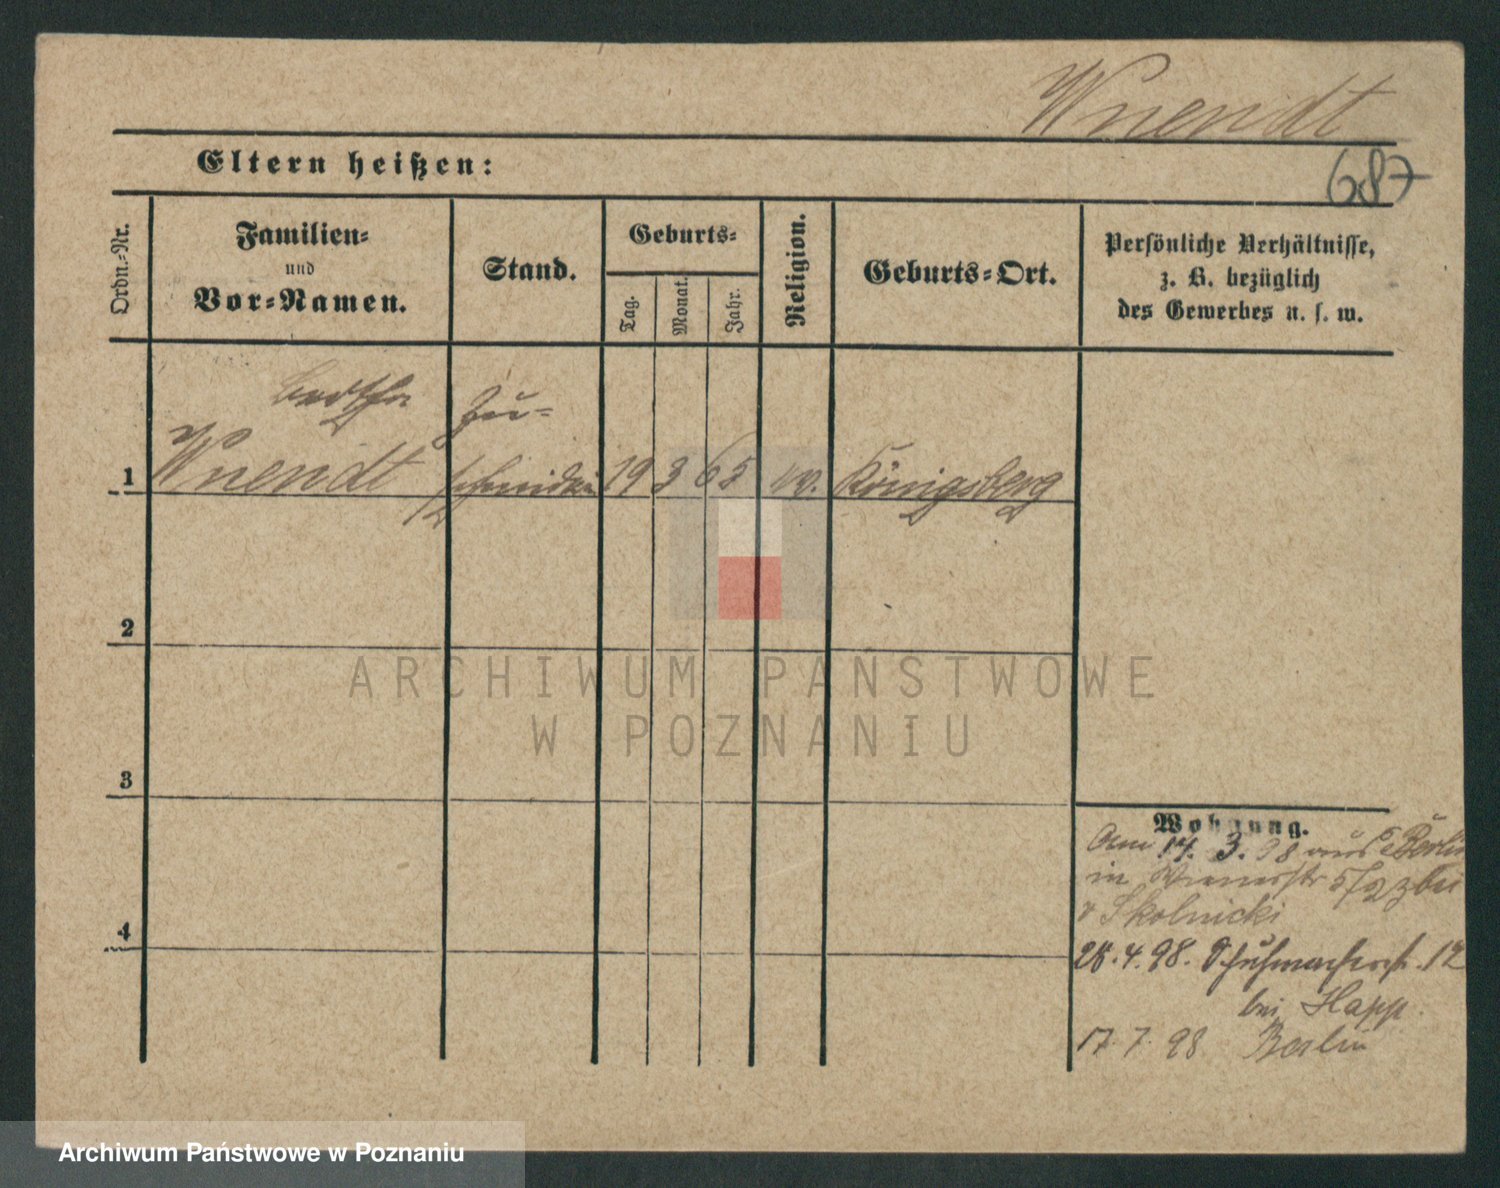 Wuendt
687
Eltern heißen:
Ordn.-Nr.
Familien-
und
Vor-Namen.
Stand.
Geburts-
Tag.
Monat.
Jahr.
Religion.
Geburts-Ort.
Persönliche Verhältnisse,
z. B. bezüglich
des Gewerbes u. s. w.
Bertha
Zu-
1 Wuendt schneiderin 19 3 65 ev. Königsberg
2
3
4
Wohnung.
Am 14. 3. 98 aus Berlin
in 5/92 bei
v Skolnicki
28.4.98. Schuhmacherstr. 12
bei Happ.
17. 7. 98 Berlin
ARCHIWUM PAŃSTWOWE
W POZNANIU
Archiwum Państwowe w Poznaniu